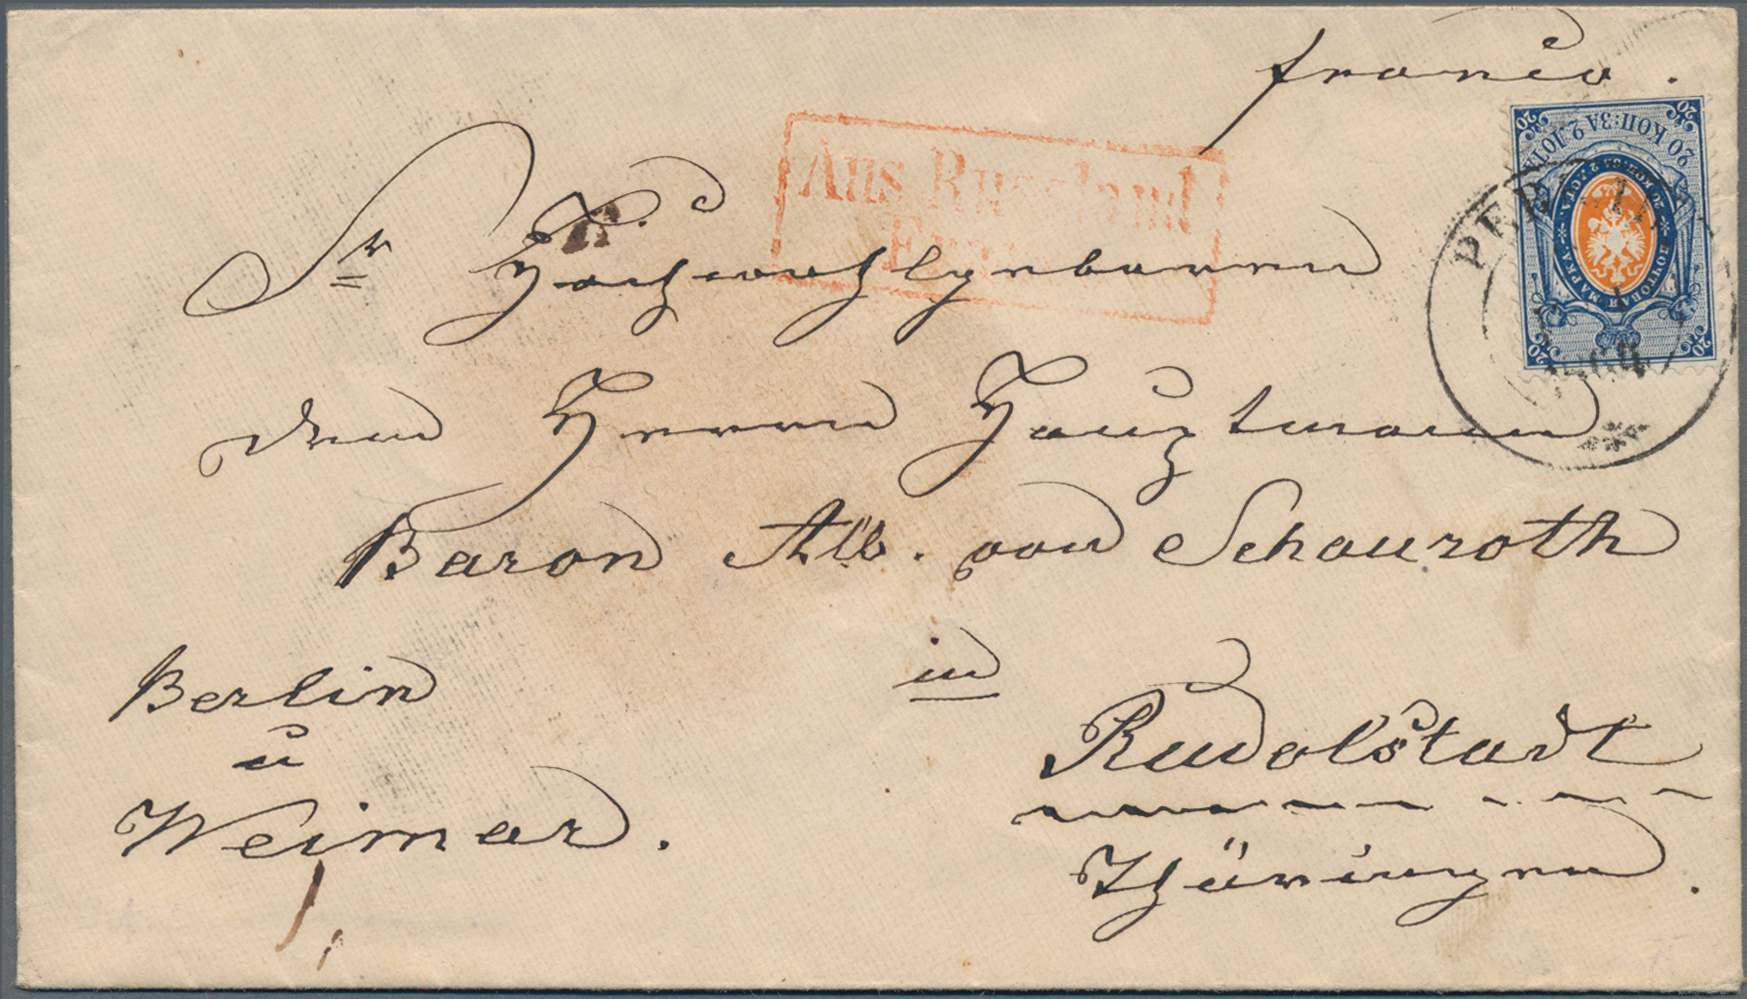 franco.
Aus Russland
Sr Hochwohlgeboren
dem Herrn Hauptmann
Baron Alb. von Schauroth
in
Rudolstadt
Thüringen.
Berlin
u
Weimar.
20 КОП: ЗА 2 ЛОТА
ПОЧТОВАЯ МАРКА
20 20 20 20